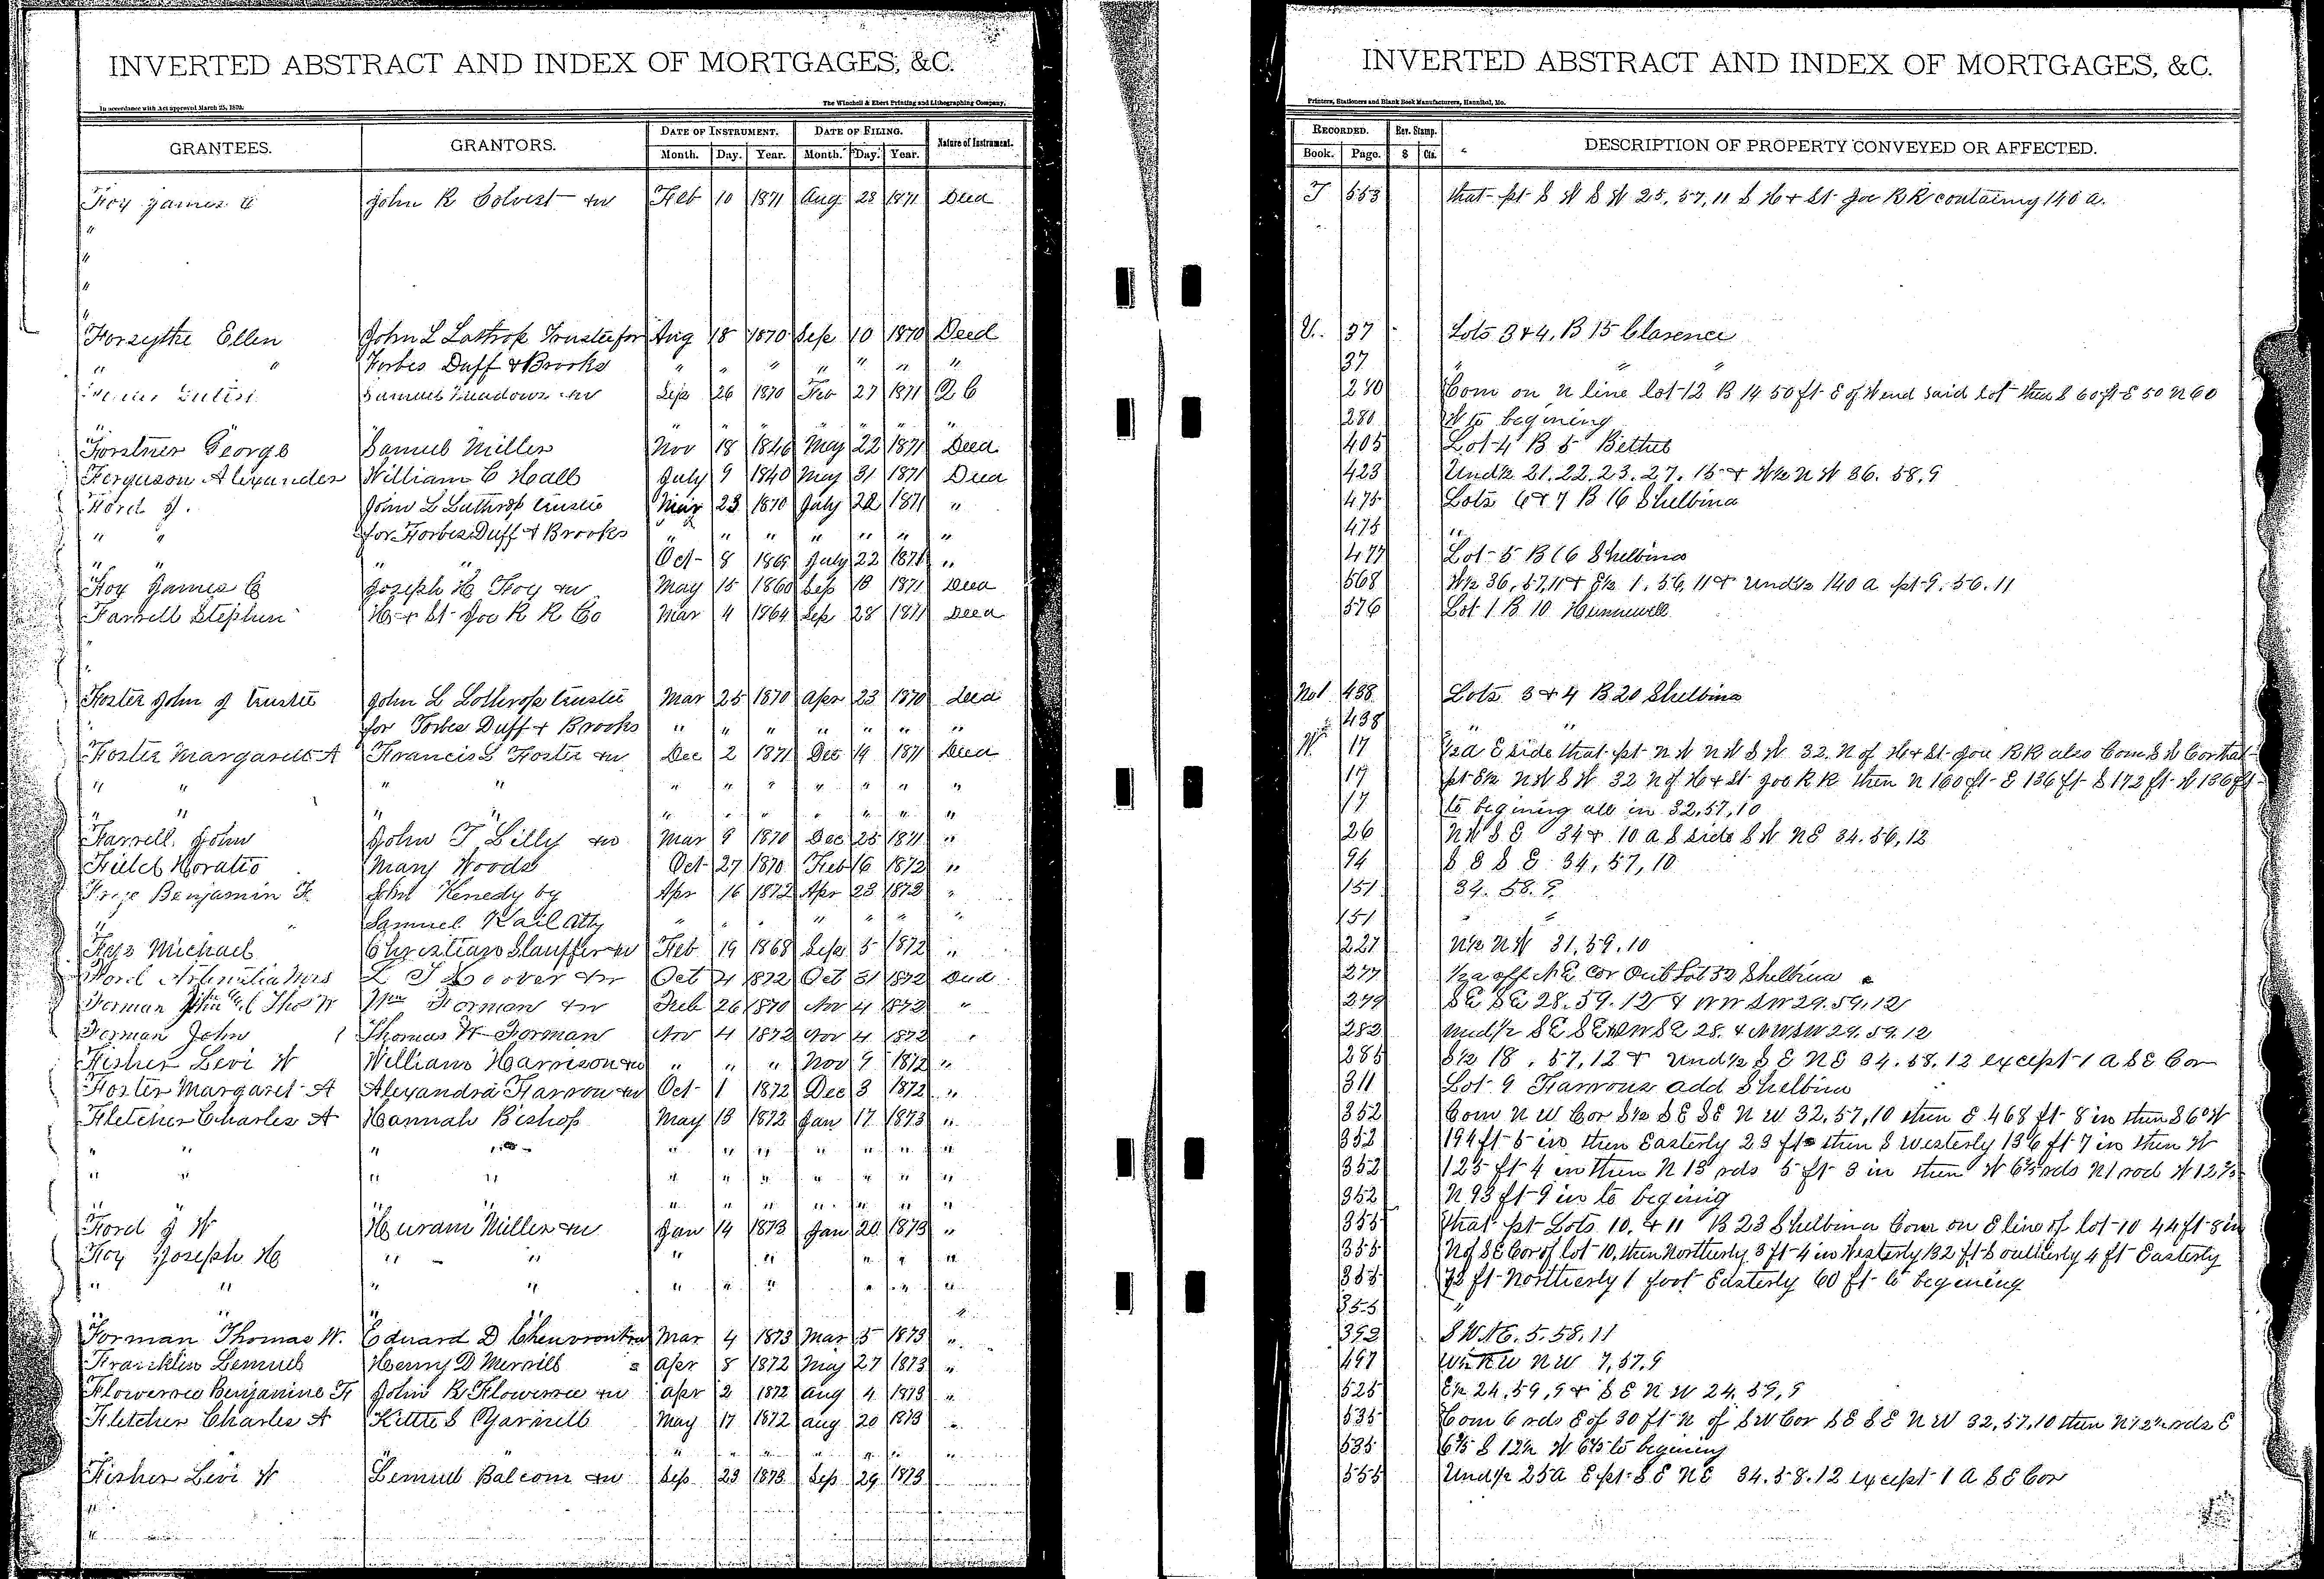 INVERTED ABSTRACT AND INDEX OF MORTGAGES, &C.
In accordance with Act approved March 25, 1872. The Winchell & Ebert Printing and Lithographing Company,
GRANTEES. GRANTORS. DATE OF INSTRUMENT. DATE OF FILING. Nature of Instrument.
Month. Day. Year. Month. Day. Year.
Foy James C John R Colvert &w Feb 10 1871 Aug 28 1871 Deed
"
"
"
"
Forsythe Ellen John L Lathrop Trustee for Aug 18 1870 Sep 10 1870 Deed
" " Forbes Duff & Brooks " " " " " " "
Samuel Meadows &w Sep 26 1870 Feb 27 1871 Q C
Forstner George Samuel Miller Nov 18 1846 May 22 1871 Deed
Ferguson Alexander William C Hall July 9 1840 May 31 1871 Deed
Ford J. John L Lathrop trustee Mar 23 1870 July 22 1871 "
" " for Forbes Duff & Brooks " " " " " " "
" " " " Oct 8 1869 July 22 1871 "
Foy James C Joseph H Foy &w May 15 1860 Sep 18 1871 Deed
Farrell Stephen H & St Joe R R Co Mar 4 1864 Sep 28 1871 Deed
"
"
Foster John J trustee John L Lothrop trustee Mar 25 1870 Apr 23 1870 Deed
" for Forbes Duff & Brooks " " " " " " "
Foster Margarett A Francis L Foster &w Dec 2 1871 Dec 19 1871 Deed
" " " " " " " " " " "
" " " " " " " " " " "
Farrell John John T Lilly &w Mar 9 1870 Dec 25 1871 "
Field Horatio Mary Woods Oct 27 1870 Feb 16 1872 "
Benjamin F John Kenedy by Apr 16 1872 Apr 23 1872 "
" " Samuel Kail Atty " " " " " " "
Michael Christian Stauffer &w Feb 19 1868 Sep 5 1872 "
Ford Mrs L T Hoover &w Oct 21 1872 Oct 31 1872 Deed
Forman John & Thos W Wm Forman &w Feb 26 1870 Nov 4 1872 "
Forman John Thomas W Forman Nov 4 1872 Nov 4 1872 "
Fisher Levi W William Harrison &w " " " Nov 9 1872 "
Foster Margaret A Alexandra Farrow &w Oct 1 1872 Dec 3 1872 "
Fletcher Charles A Hannah Bishop May 13 1872 Jan 17 1873 "
" " " " " " " " " " "
" " " " " " " " " " "
" " " " " " " " " " "
Ford J W Huram Miller &w Jan 14 1873 Jan 20 1873 "
Foy Joseph H " " " " " " "
" " " " " " " " " "
" " " " "
Forman Thomas W. Eduard D Chenvront &w Mar 4 1873 Mar 5 1873 "
Francklin Lemuel Henry D Merrill Apr 8 1872 May 27 1873 "
Flowerree Benjamine F John R Flowerree &w Apr 2 1872 Aug 4 1873 "
Fletcher Charles A Kittie S Yarnell May 17 1872 Aug 20 1873 "
" " " " " " "
Fisher Levi W Lemuel Balcom &w Sep 23 1873 Sep 29 1873
"
"
INVERTED ABSTRACT AND INDEX OF MORTGAGES, &C.
Printers, Stationers and Blank Book Manufacturers, Hannibal, Mo.
RECORDED. Rev. Stamp. DESCRIPTION OF PROPERTY CONVEYED OR AFFECTED.
Book. Page. $ Cts.
T 553 that pt S W S W 25, 57, 11 S H & St Joe R R containing 140 a.
U. 37 Lots 3 & 4, B 15 Clarence
37 " " "
280 Com on N line lot 12 B 14 50 ft E of W end said lot then S 60 ft E 50 N 60
280 W to begining
405 Lot 4 B 5 Bethel
423 Und½ 21. 22. 23. 27. 15 & W½ N W 36. 58. 9
475 Lots 6 & 7 B 16 Shelbina
475 "
477 Lot 5 B 16 Shelbina
568 W½ 36, 57, 11 & E½ 1. 56, 11 & und½ 140 a pt 9. 56. 11
576 Lot 1 B 10 Hunnewell
No1 438 Lots 3 & 4 B 20 Shelbina
" 438 " "
W 17 ½a E side that pt N W N W S W 32. N of H & St Joe R R also Com S W Cor that
17 pt E½ N W S W 32 N of H & St Joe R R then N 160 ft E 136 ft S 172 ft W 136 ft
17 to begining all in 32, 57, 10
26 N W S E 34 & 10 a S side S W N E 34. 56, 12
94 S E S E 34, 57, 10
151 34. 58. 9
151 " "
227 N½ N W 31. 59. 10
277 ½a off N E cor Out Lot 32 Shelbina
279 SE SE 28. 59. 12 & NW SW 29. 59. 12
282 und½ SE SE NW SE 28. & NW SW 29. 59. 12
285 S½ 18, 57, 12 & Und½ S E N E 34. 58. 12 except 1 A S E Cor
311 Lot 9 Farrows add Shelbina
352 Com N W Cor S½ S E S E N W 32, 57, 10 then E 468 ft 8 in then S 6° W
352 194 ft 5 in then Easterly 23 ft then S Westerly 136 ft 7 in then W
352 125 ft 4 in then N 13 rds 5 ft 3 in then W 6⅔ rds N 1 rod W 12⅔
352 N 93 ft 9 in to begining
355 that pt Lots 10, & 11 B 23 Shelbina Com on E line of lot 10 44 ft 8 in
355 N of S E Cor of lot 10, then Northerly 3 ft 4 in Westerly 132 ft Southerly 4 ft Easterly
355 72 ft Northerly 1 foot Easterly 60 ft to begining
355 "
392 S W N E. 5. 58. 11
497 N W 7, 57, 9
525 E½ 24, 59, 9 & S E N W 24, 59, 9
535 Com 6 rds E of 30 ft N of S W Cor S E S E N W 32, 57, 10 then N 12½ rds E
535 6⅔ S 12½ W 6⅔ to begining
555 Und½ 25a E pt S E N E 34. 58. 12 except 1 A S E Cor